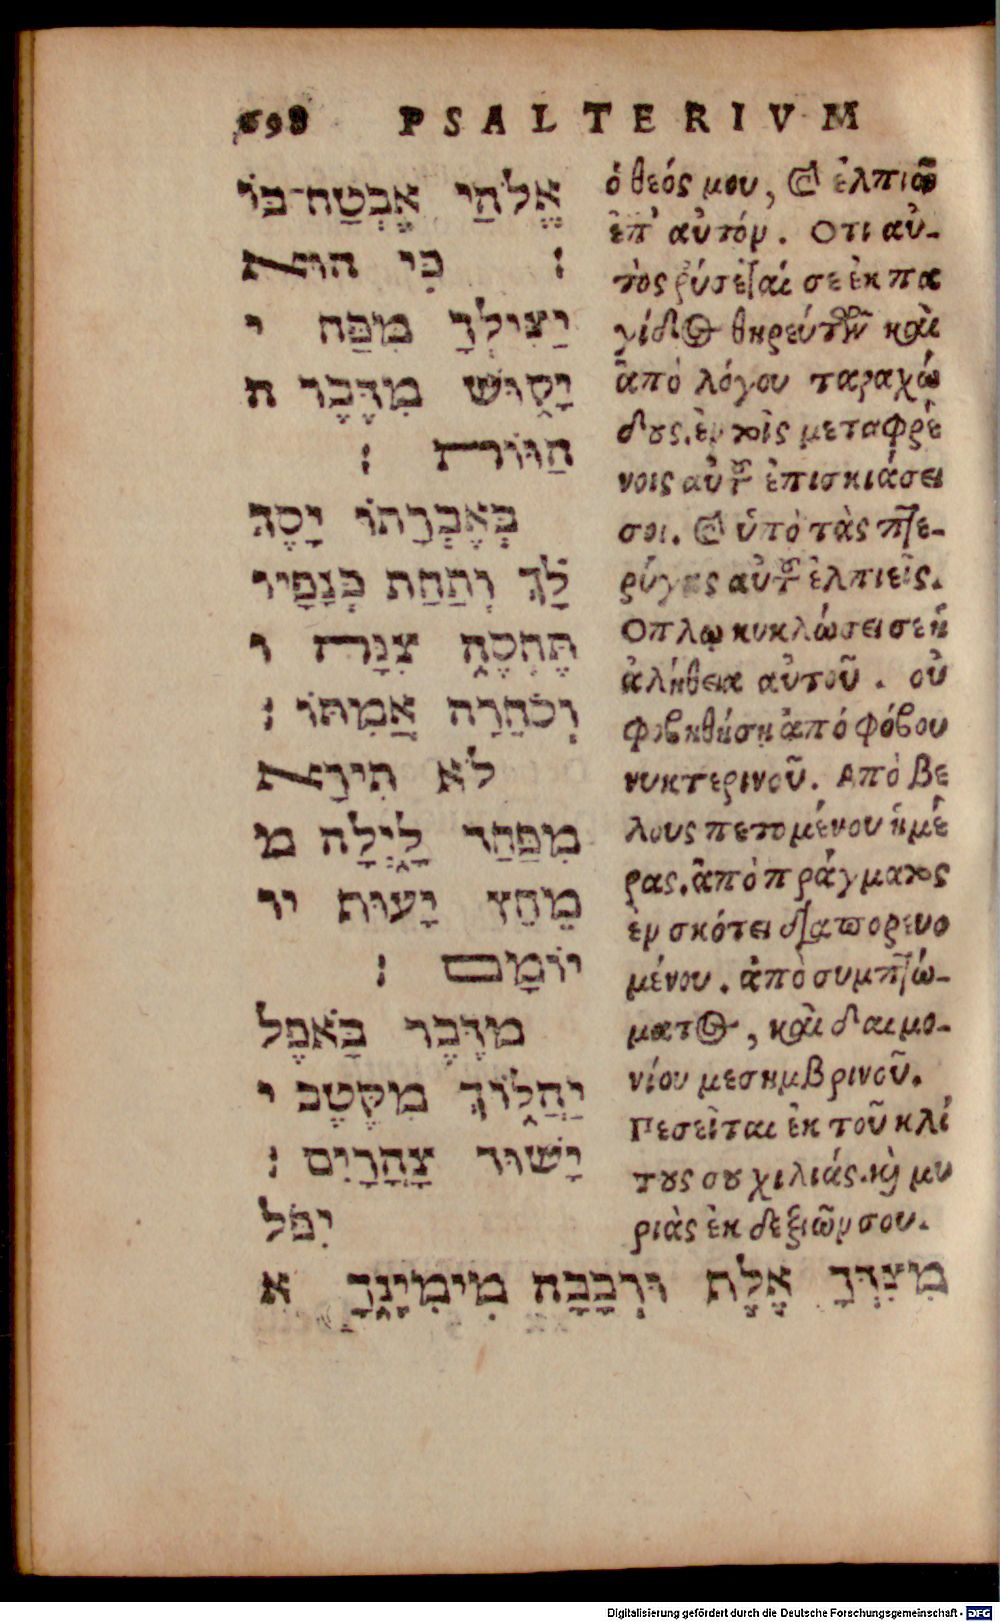 698 PSALTERIVM
אֱלֹהַי אֶבְטַח־בּוֹ
׃ כִּי הוּא
יַצִּילְךָ מִפַּח י
יָקוּשׁ מִדֶּבֶר ה
הַוּוֹת ׃
בְּאֶבְרָתוֹ יָסֶךְ
לָךְ וְתַחַת כְּנָפָיו
תֶּחְסֶה צִנָּה ו
וְסֹחֵרָה אֲמִתּוֹ ׃
לֹא תִירָא
מִפַּחַד לָיְלָה מ
מֵחֵץ יָעוּף יו
יוֹמָם ׃
מִדֶּבֶר בָּאֹפֶל
יַהֲלוֹךְ מִקֶּטֶב י
יָשׁוּד צָהֳרָיִם ׃
יִפֹּל
מִצִּדְּךָ אֶלֶף וּרְבָבָה מִימִינֶךָ א
ὁ θεός μου, Ϗ ἐλπιῶ
ἐπ' αὐτόν. Οτι αὐ-
τὸς ῥύσεταί σε ἐκ πα
γίδος θηρευτῶν καὶ
ἀπὸ λόγου ταραχώ
δους. ἐν τοῖς μεταφρέ
νοις αὐτοῦ ἐπισκιάσει
σοι. Ϗ ὑπὸ τὰς πτε-
ρύγας αὐτοῦ ἐλπιεῖς.
Οπλῳ κυκλώσει σε ἡ
ἀλήθεια αὐτοῦ. οὐ
φοβηθήσῃ ἀπό φόβου
νυκτερινοῦ. Απὸ βε
λους πετομένου ἡμέ
ρας. ἀπὸ πράγματος
ἐν σκότει διαπορευο
μένου. ἀπὸ συμπτώ-
ματος, καὶ δαιμο-
νίου μεσημβρινοῦ.
Πεσεῖται ἐκ τοῦ κλί
τους σου χιλιάς. καὶ μυ
ριὰς ἐκ δεξιῶν σου.
Digitalisierung gefördert durch die Deutsche Forschungsgemeinschaft - DFG